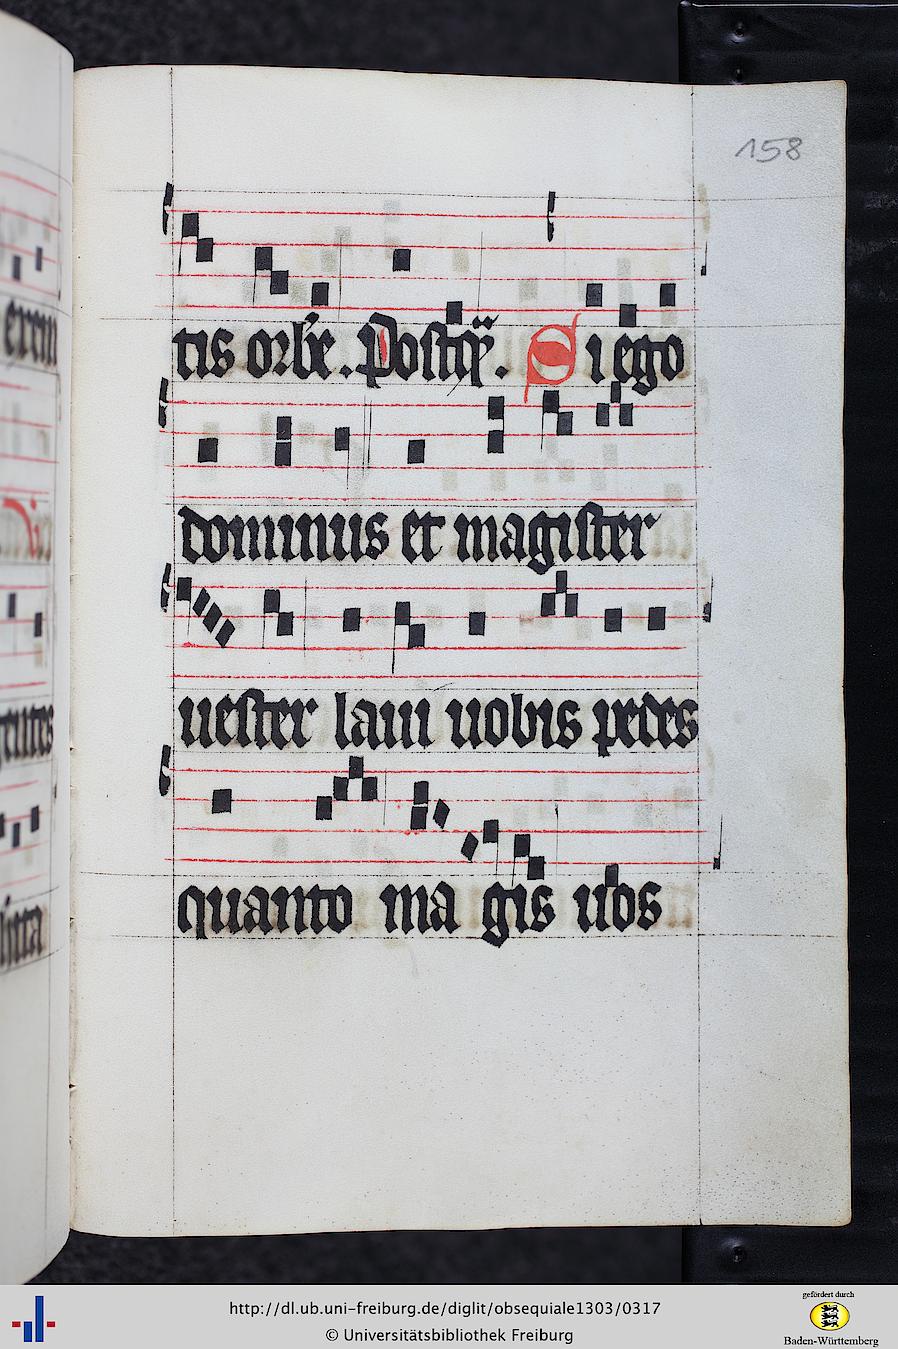 158
tis orbe. Postq̄. Si ego
dominus et magister
uester laui uobis pedes
quanto ma gis uos
http://dl.ub.uni-freiburg.de/diglit/obsequiale1303/0317
© Universitätsbibliothek Freiburg
gefördert durch
Baden-Württemberg